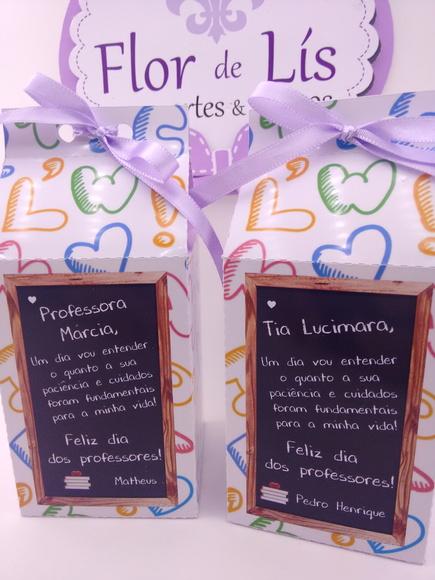 Flor de Lís
rtes &
Professora
Márcia,
Um dia vou entender
o quanto a sua
paciência e cuidados
foram fundamentais
para a minha vida!
Feliz dia
dos professores!
Matheus
Tia Lucimara,
Um dia vou entender
o quanto a sua
paciência e cuidados
foram fundamentais
para a minha vida!
Feliz dia
dos professores!
Pedro Henrique